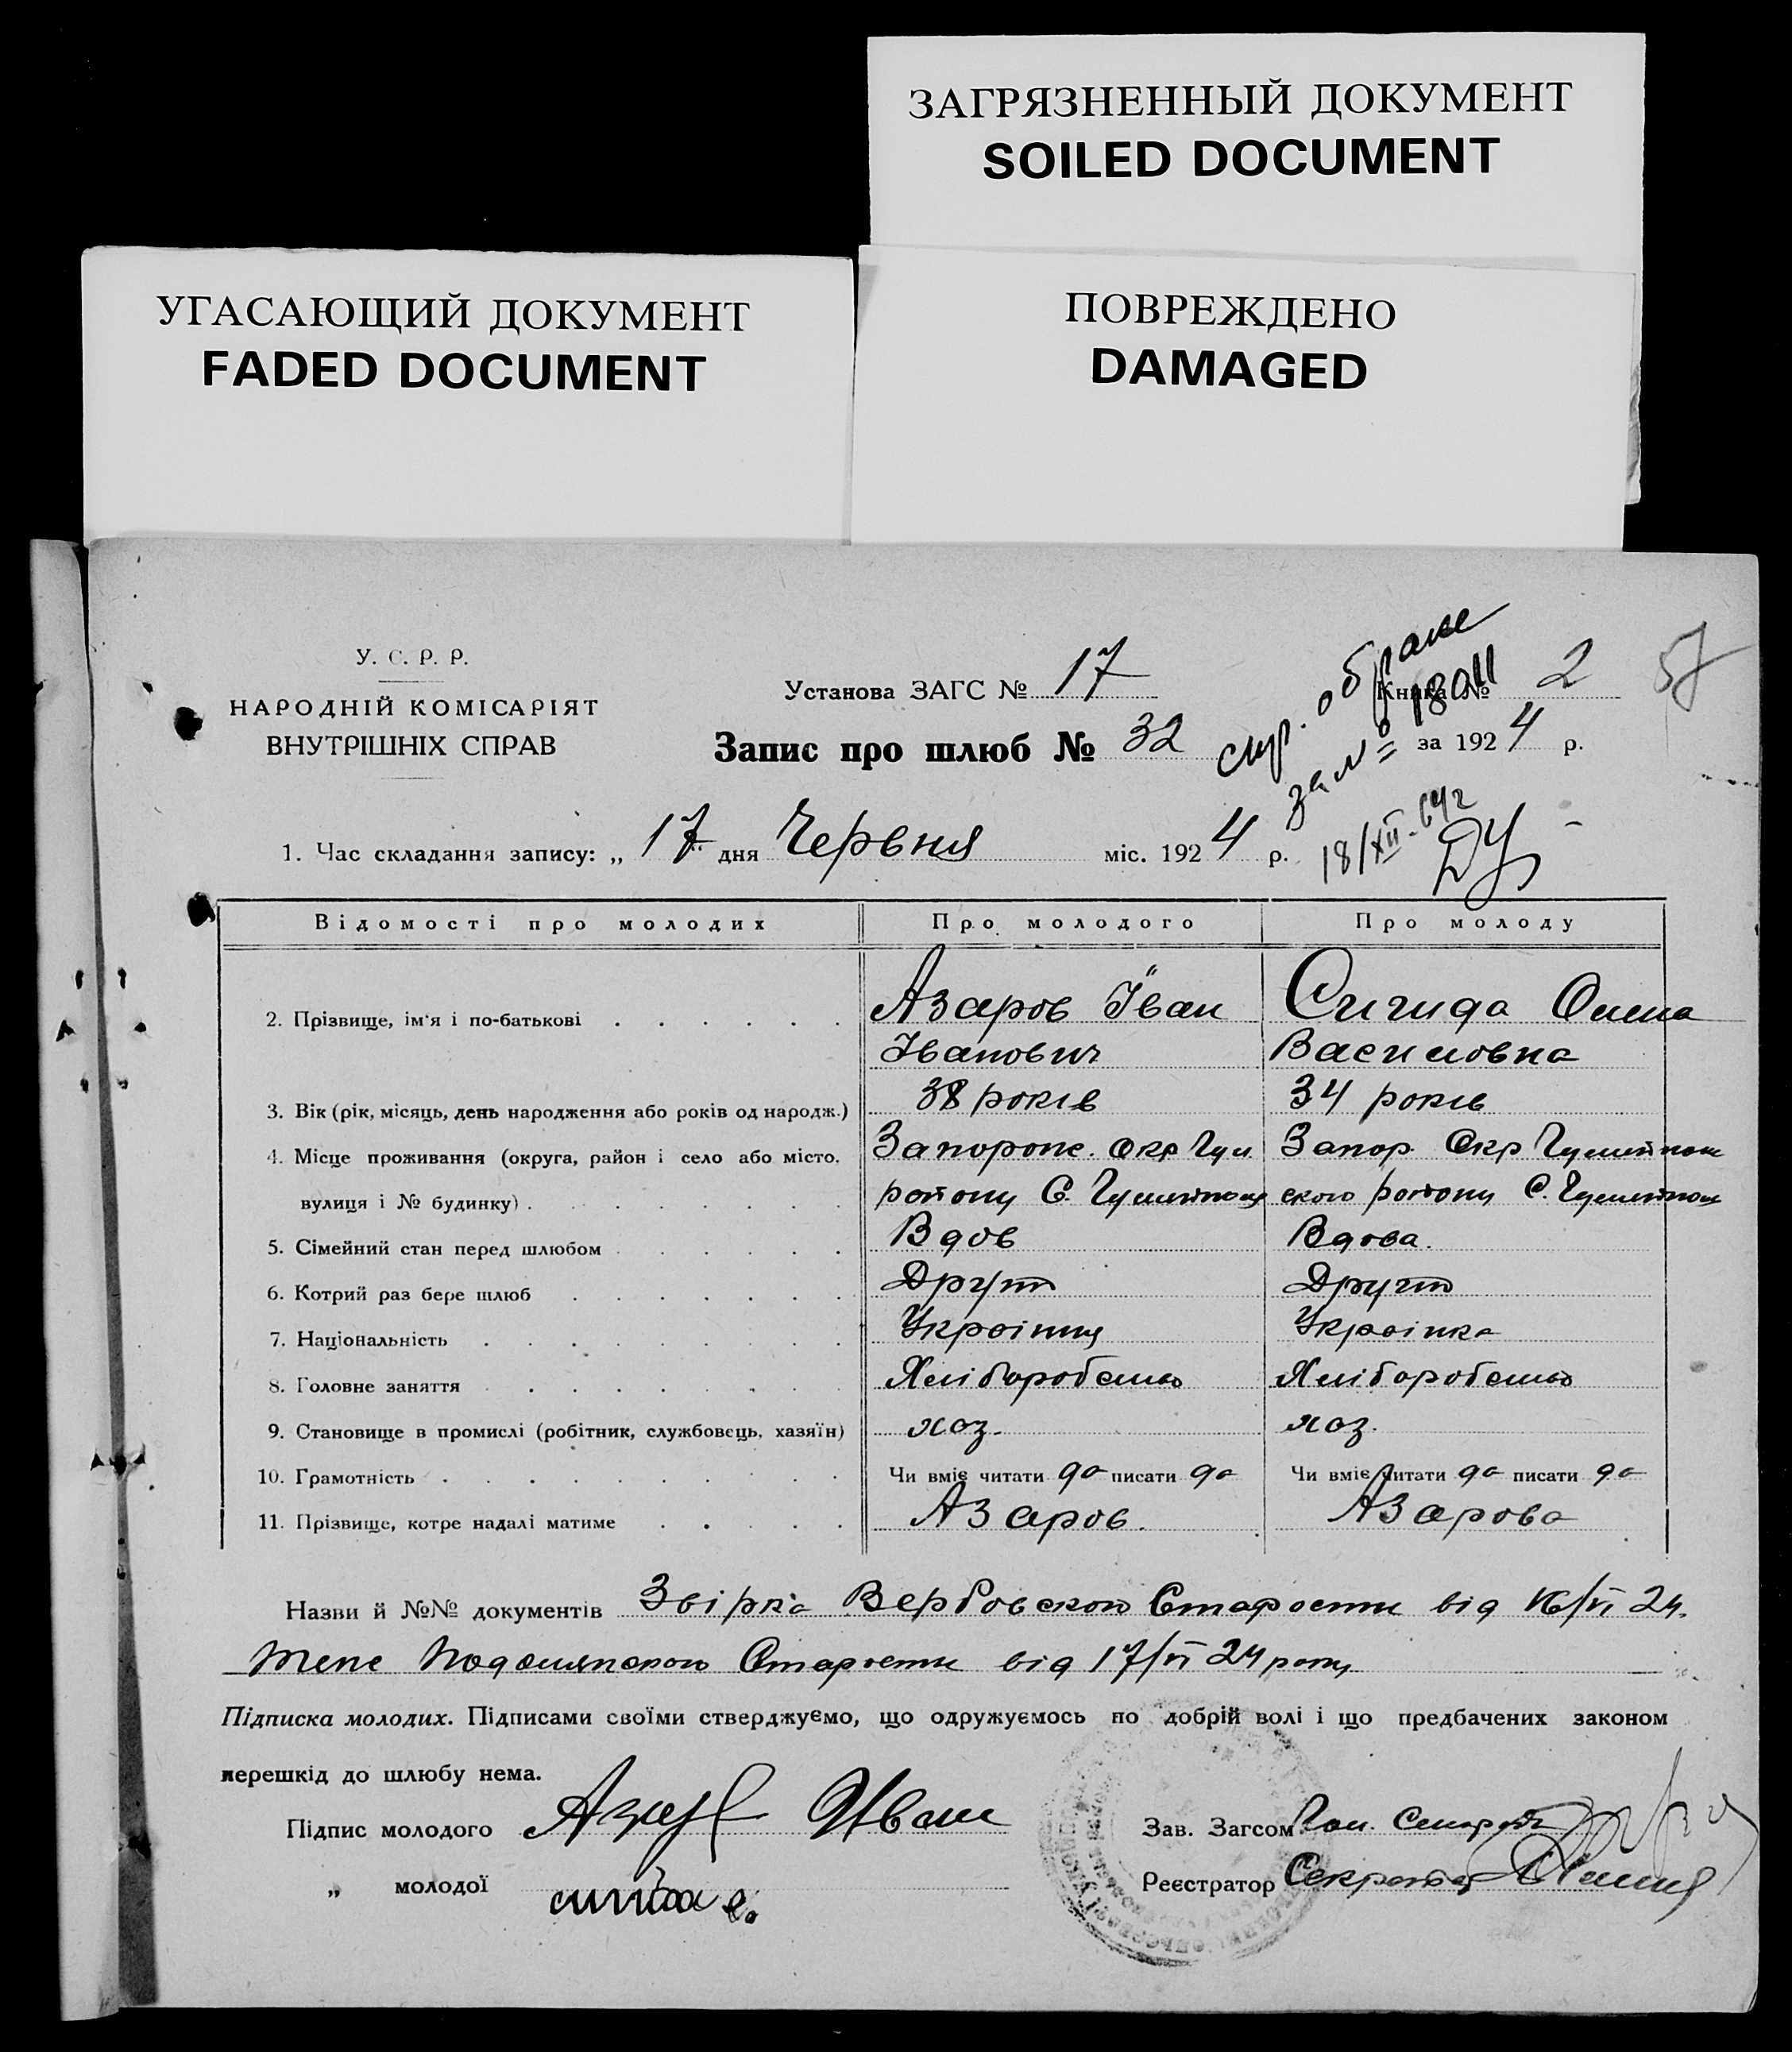 ЗАГРЯЗНЕННЫЙ ДОКУМЕНТ
SOILED DOCUMENT
УГАСАЮЩИЙ ДОКУМЕНТ
FADED DOCUMENT
ПОВРЕЖДЕНО
DAMAGED
У. С. Р. Р.
НАРОДНІЙ КОМІСАРІЯТ
ВНУТРІШНІХ СПРАВ
Установа ЗАГС № 17
Книга № 2
57
Запис про шлюб № 32
за 1924 р.
за № 18011
18/XII-64г
1. Час складання запису: „ 17 “ дня Червня міс. 1924 р.
Відомості про молодих Про молодого Про молоду
2. Прізвище, ім'я і по-батькові Азаров Іван Сигида Олена
Іванович Василовна
3. Вік (рік, місяць, день народження або років од народж.) 38 років 34 років
4. Місце проживання (округа, район і село або місто, Запорож. Окр Гул Запор. Окр
вулиця і № будинку) району С. ского району С.
5. Сімейний стан перед шлюбом Вдов Вдова.
6. Котрий раз бере шлюб Другий Другий
7. Національність Українц Українка
8. Головне заняття Хліборобство Хліборобство
9. Становище в промислі (робітник, службовець, хазяїн) хоз. хоз.
10. Грамотність Чи вміє читати да писати да Чи вміє читати да писати да
11. Прізвище, котре надалі матиме Азаров. Азарова
Назви й №№ документів Звірка Вербовского Старости від 16/VI 24.
Старости від 17/VI 24 року
Підписка молодих. Підписами своїми стверджуємо, що одружуємось по добрій волі і що предбачених законом
перешкід до шлюбу нема.
Підпис молодого Азаров Иван Зав. Загсом
„ молодої Реєстратор Секретар